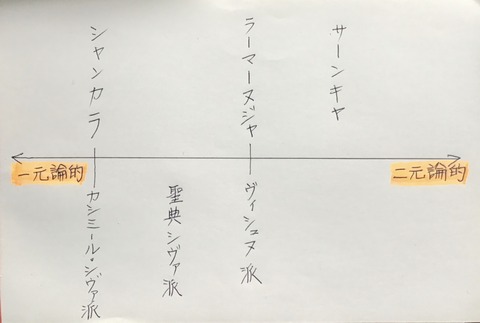 シャンカラ
ラーマーヌジャー
サーンキヤ
一元論的
二元論的
カシミール・シヴァ派
聖典シヴァ派
ヴィシュヌ派